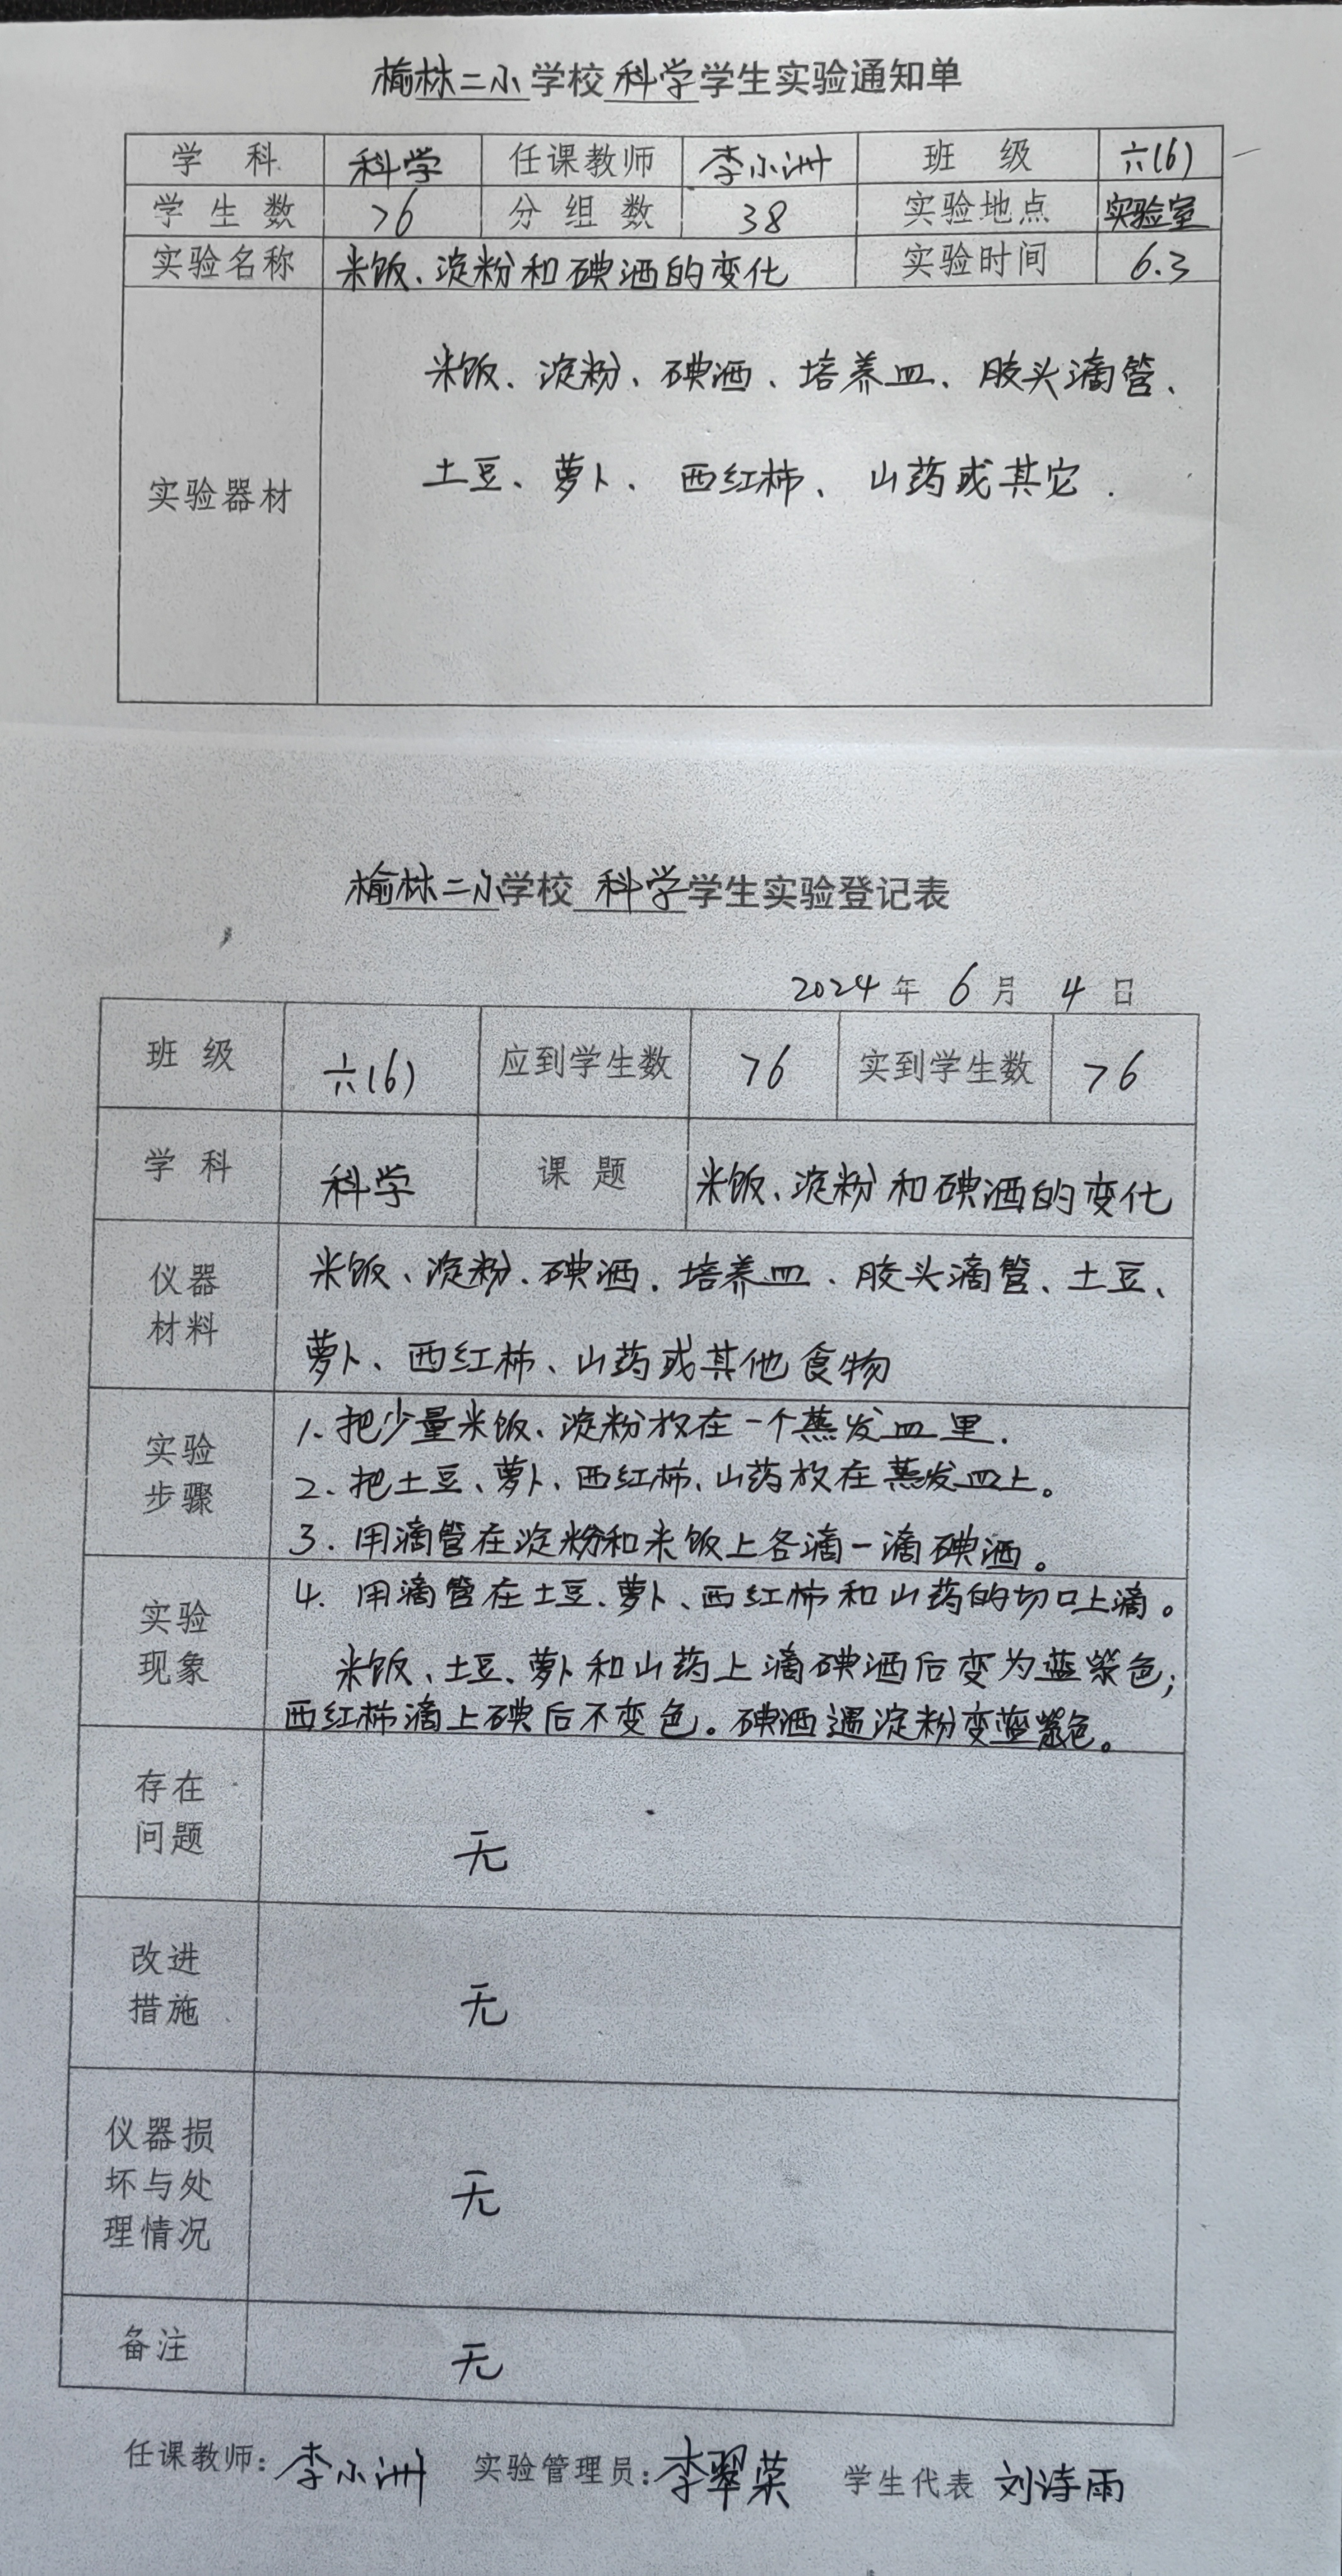 榆林二小学校科学学生实验通知单
学 科 科学 任课教师 李小洲 班 级 六(6)
学生数 76 分组数 38 实验地点 实验室
实验名称 米饭、淀粉和碘酒的变化 实验时间 6.3
米饭、淀粉、碘酒、培养皿、胶头滴管、
实验器材 土豆、萝卜、西红柿、山药或其它.
榆林二小学校科学学生实验登记表
2024年6月4日
班 级 六(6) 应到学生数 76 实到学生数 76
学 科 科学 课 题 米饭、淀粉和碘酒的变化
仪器 米饭、淀粉、碘酒、培养皿、胶头滴管、土豆、
材料 萝卜、西红柿、山药或其他食物
1、把少量米饭、淀粉放在一个蒸发皿里.
实验 2、把土豆、萝卜、西红柿、山药放在蒸发皿上。
步骤 3.用滴管在淀粉和米饭上各滴一滴碘酒。
实验 4.用滴管在土豆、萝卜、西红柿和山药的切口上滴。
现象 米饭、土豆、萝卜和山药上滴碘酒后变为蓝紫色;
西红柿滴上碘后不变色。碘酒遇淀粉变蓝紫色。
存在
问题 无
改进
措施 无
仪器损
坏与处 无
理情况
备注 无
任课教师:李小洲 实验管理员:李翠荣 学生代表 刘诗雨